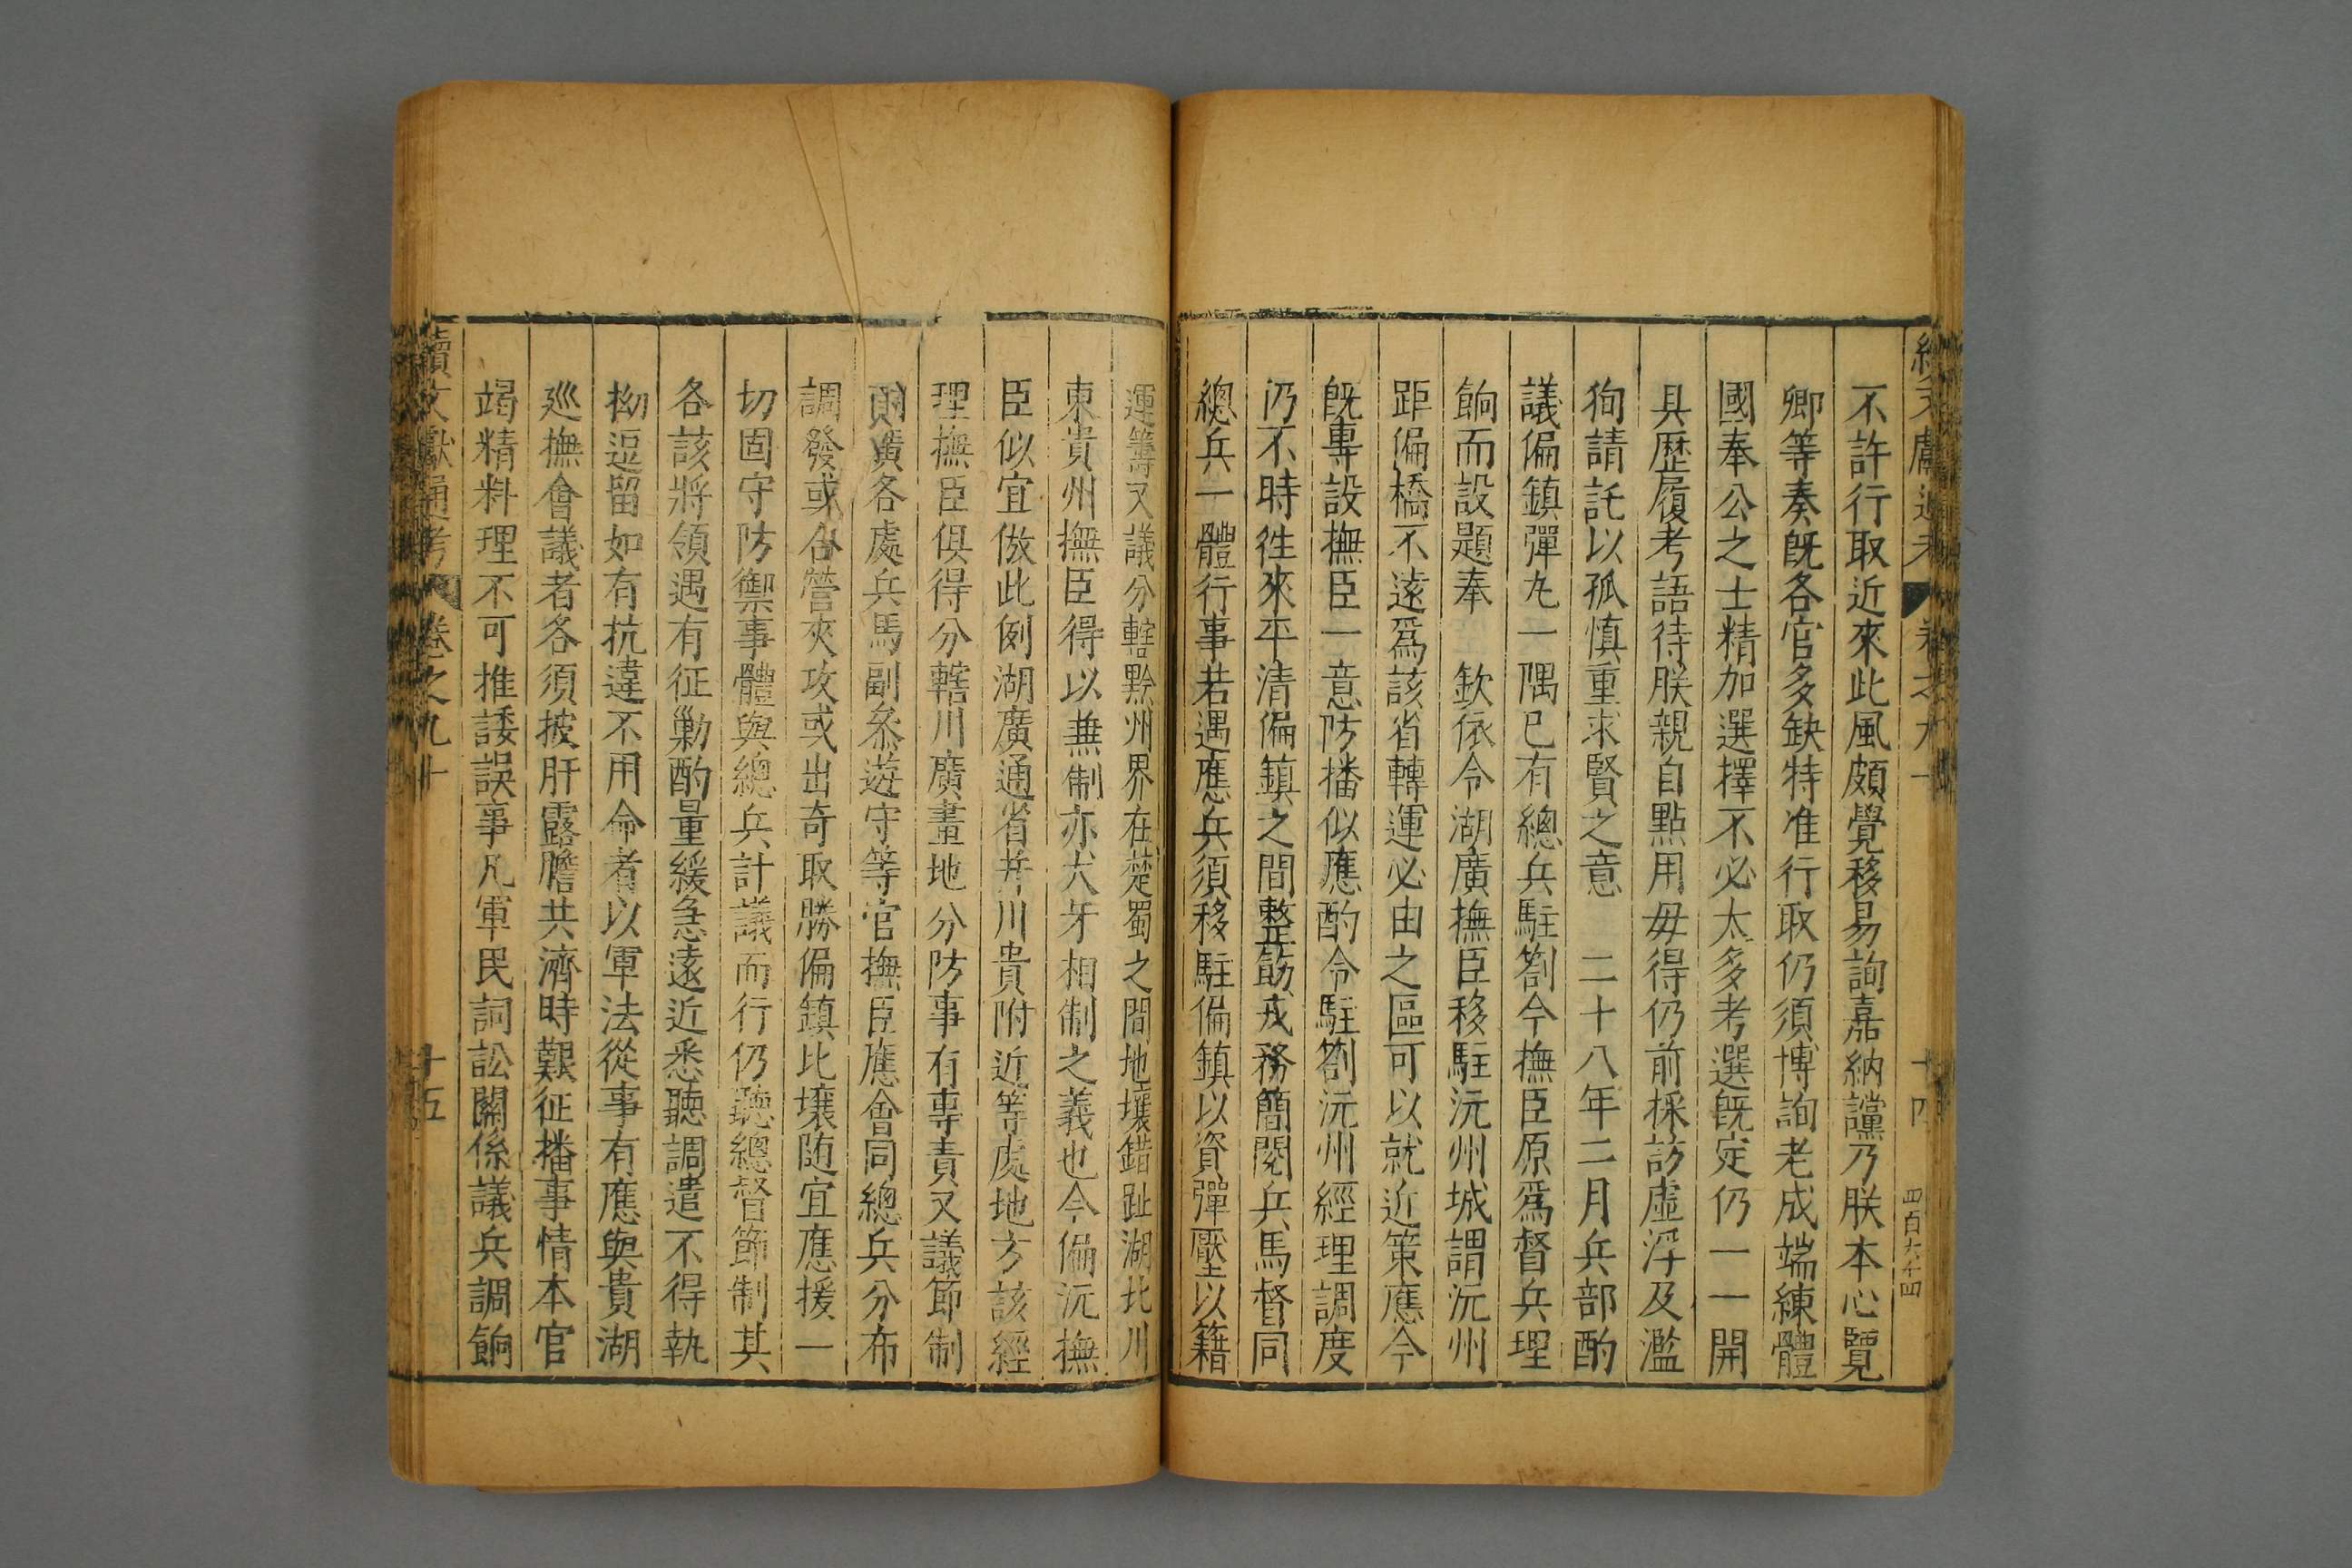 不許行取近來此風頗覺移易詢嘉納讜乃朕本心覽
卿等奏旣各官多缺特准行取仍須博詢老成端練體
國奉公之士精加選擇不必太多考選旣定仍一一開
具歷履考語待朕親自點用毋得仍前採訪虛浮及濫
狥請託以孤慎重求賢之意 二十八年二月兵部酌
議偏鎮彈丸一隅已有總兵駐劄今撫臣原爲督兵理
餉而設題奉 欽依令湖廣撫臣移駐沅州城謂沅州
距偏橋不遠爲該省轉運必由之區可以就近策應今
旣專設撫臣一意防播似應酌令駐劄沅州經理調度
仍不時徃來平清偏鎮之間整飭戎務簡閱兵馬督同
總兵一體行事若遇應兵須移駐偏鎮以資彈壓以籍
運籌又議分轄黔州界在楚蜀之間地壤錯趾湖北川
東貴州撫臣得以兼制亦犬牙相制之義也今偏沅撫
臣似宜倣此例湖廣通省并川貴附近等處地方該經
理撫臣俱得分轄川廣畫地分防事有專責又議節制
廣各處兵馬副叅遊守等官撫臣應會同總兵分布
調發或合營夾攻或出奇取勝偏鎮比壤随宜應援一
切固守防禦事體與總兵計議而行仍聽總督節制其
各該將領遇有征勦酌量緩急遠近悉聽調遣不得執
拗逗留如有抗違不用命者以軍法從事有應與貴湖
廵撫會議者各須披肝露膽共濟時艱征播事情本官
竭精料理不可推諉誤事凡軍民詞訟關係議兵調餉
續文獻通考 卷之九十 十五